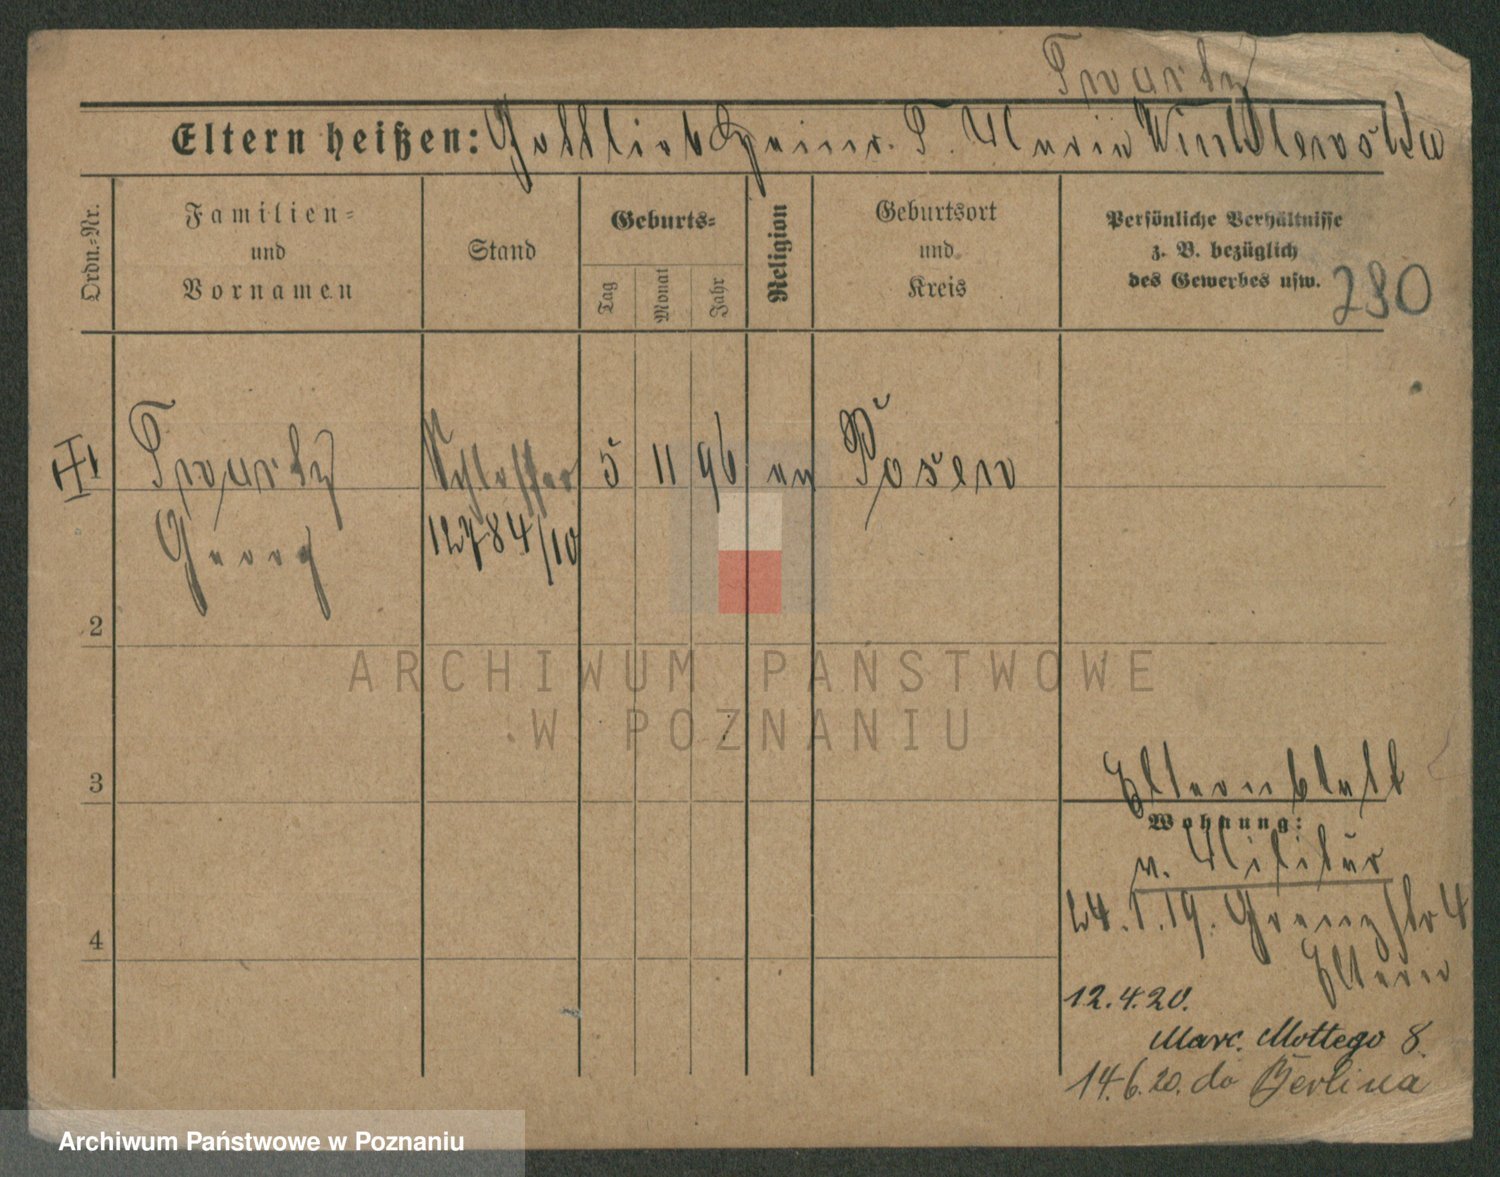 Twartz
Eltern heißen: Gottlieb Heinr. T. Maria
Ordn.=Nr.
Familien=
und
Vornamen
Stand
Geburts=
Tag
Monat
Jahr
Religion
Geburtsort
und
Kreis
Persönliche Verhältnisse
z. B. bezüglich
des Gewerbes usw.
280
Schlosser 5 11 96 ev Posen
Georg 12784/10
2
3
4
Elternblatt
Wohnung:
v. Militär
24.1.19. Grenzstr 4
Eltern
12.4.20.
Marc. Mottego 8.
14.6.20. do Berlina
ARCHIWUM PAŃSTWOWE
W POZNANIU
Archiwum Państwowe w Poznaniu